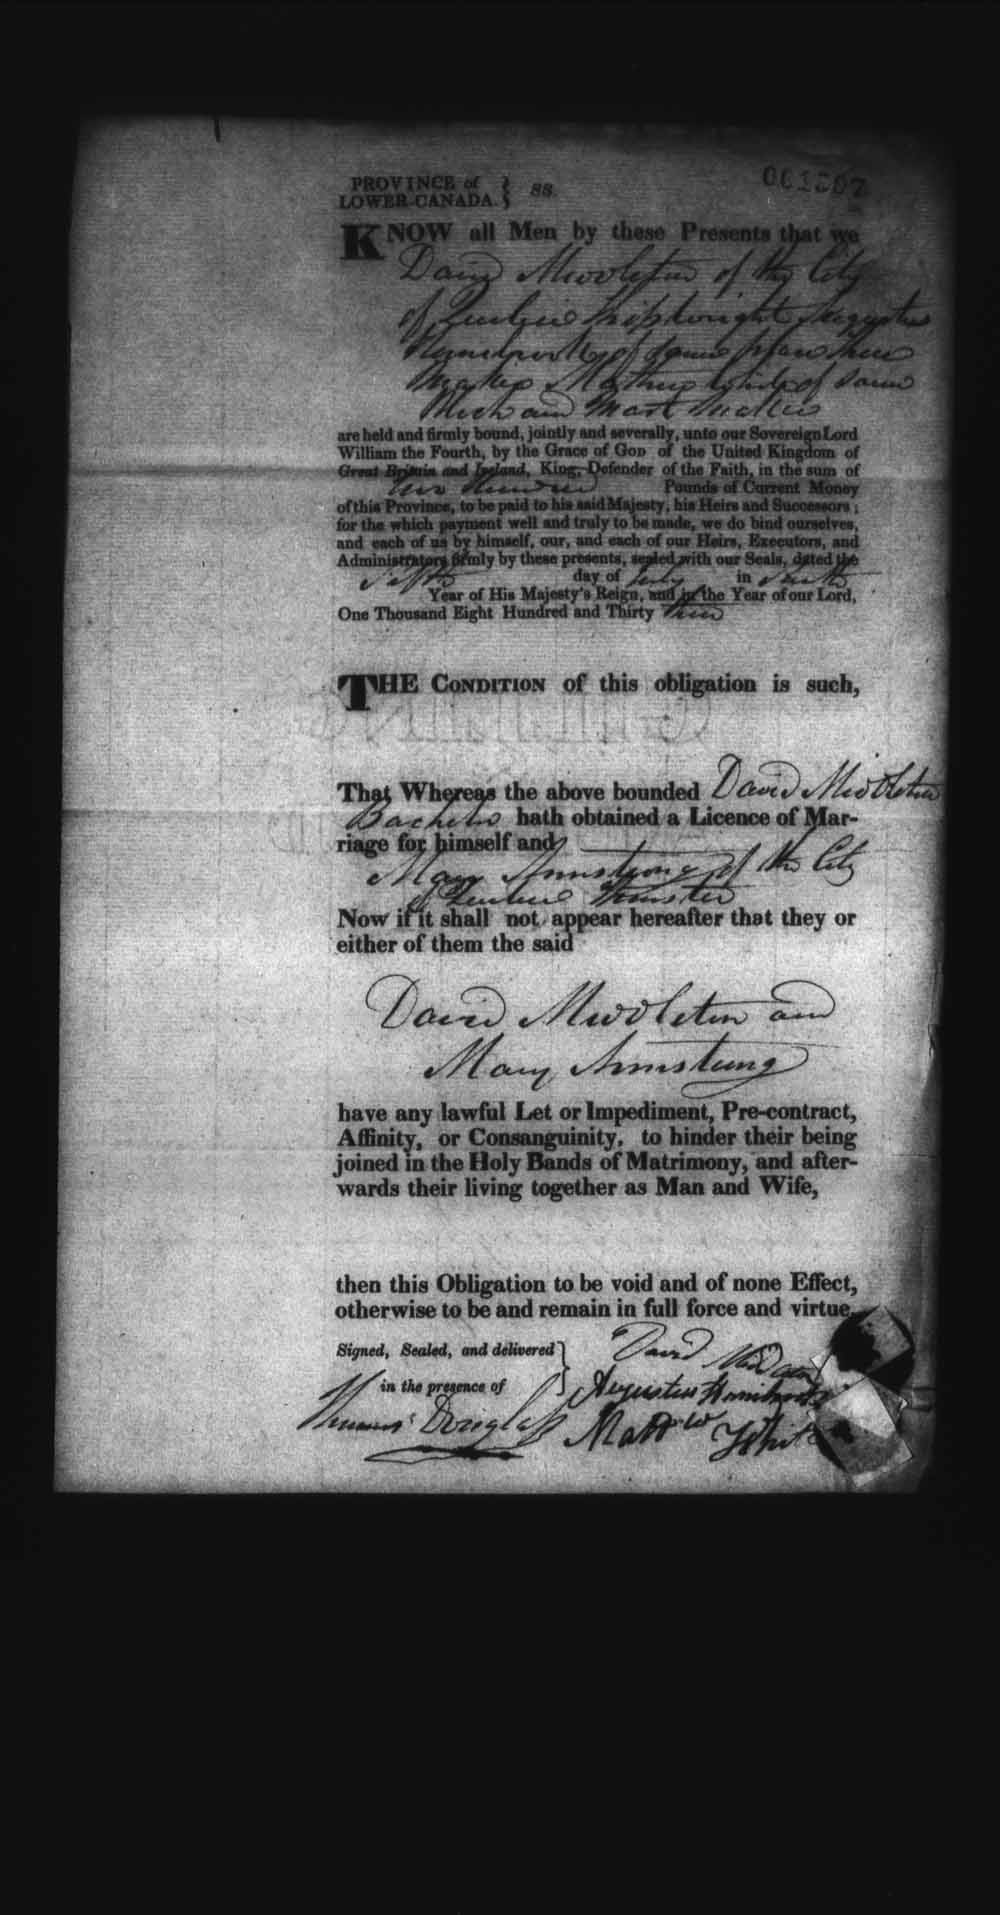 PROVINCE of
LOWER-CANADA. } SS.
KNOW all Men by these Presents that we
David Middleton of the City
of Quebec Shipwright Augustus
of same place
Matthew White of same
place
are held and firmly bound, jointly and severally, unto our Sovereign Lord
William the Fourth, by the Grace of GOD of the United Kingdom of
Great Britain and Ireland, King, Defender of the Faith, in the sum of
Two Hundred Pounds of Current Money
of this Province, to be paid to his said Majesty, his Heirs and Successors;
for the which payment well and truly to be made, we do bind ourselves,
and each of us by himself, our, and each of our Heirs, Executors, and
Administrators firmly by these presents, sealed with our Seals, dated the
Fifth day of July in
Year of His Majesty's Reign, and in the Year of our Lord,
One Thousand Eight Hundred and Thirty three
THE CONDITION of this obligation is such,
That Whereas the above bounded David Middleton
Bachelor hath obtained a Licence of Mar-
riage for himself and
Mary Armstrong of the City
of Quebec Spinster
Now if it shall not appear hereafter that they or
either of them the said
David Middleton and
Mary Armstrong
have any lawful Let or Impediment, Pre-contract,
Affinity, or Consanguinity, to hinder their being
joined in the Holy Bands of Matrimony, and after-
wards their living together as Man and Wife,
then this Obligation to be void and of none Effect,
otherwise to be and remain in full force and virtue.
Signed, Sealed, and delivered
in the presence of
David Middleton
Augustus
Thomas Douglass
Mattw White